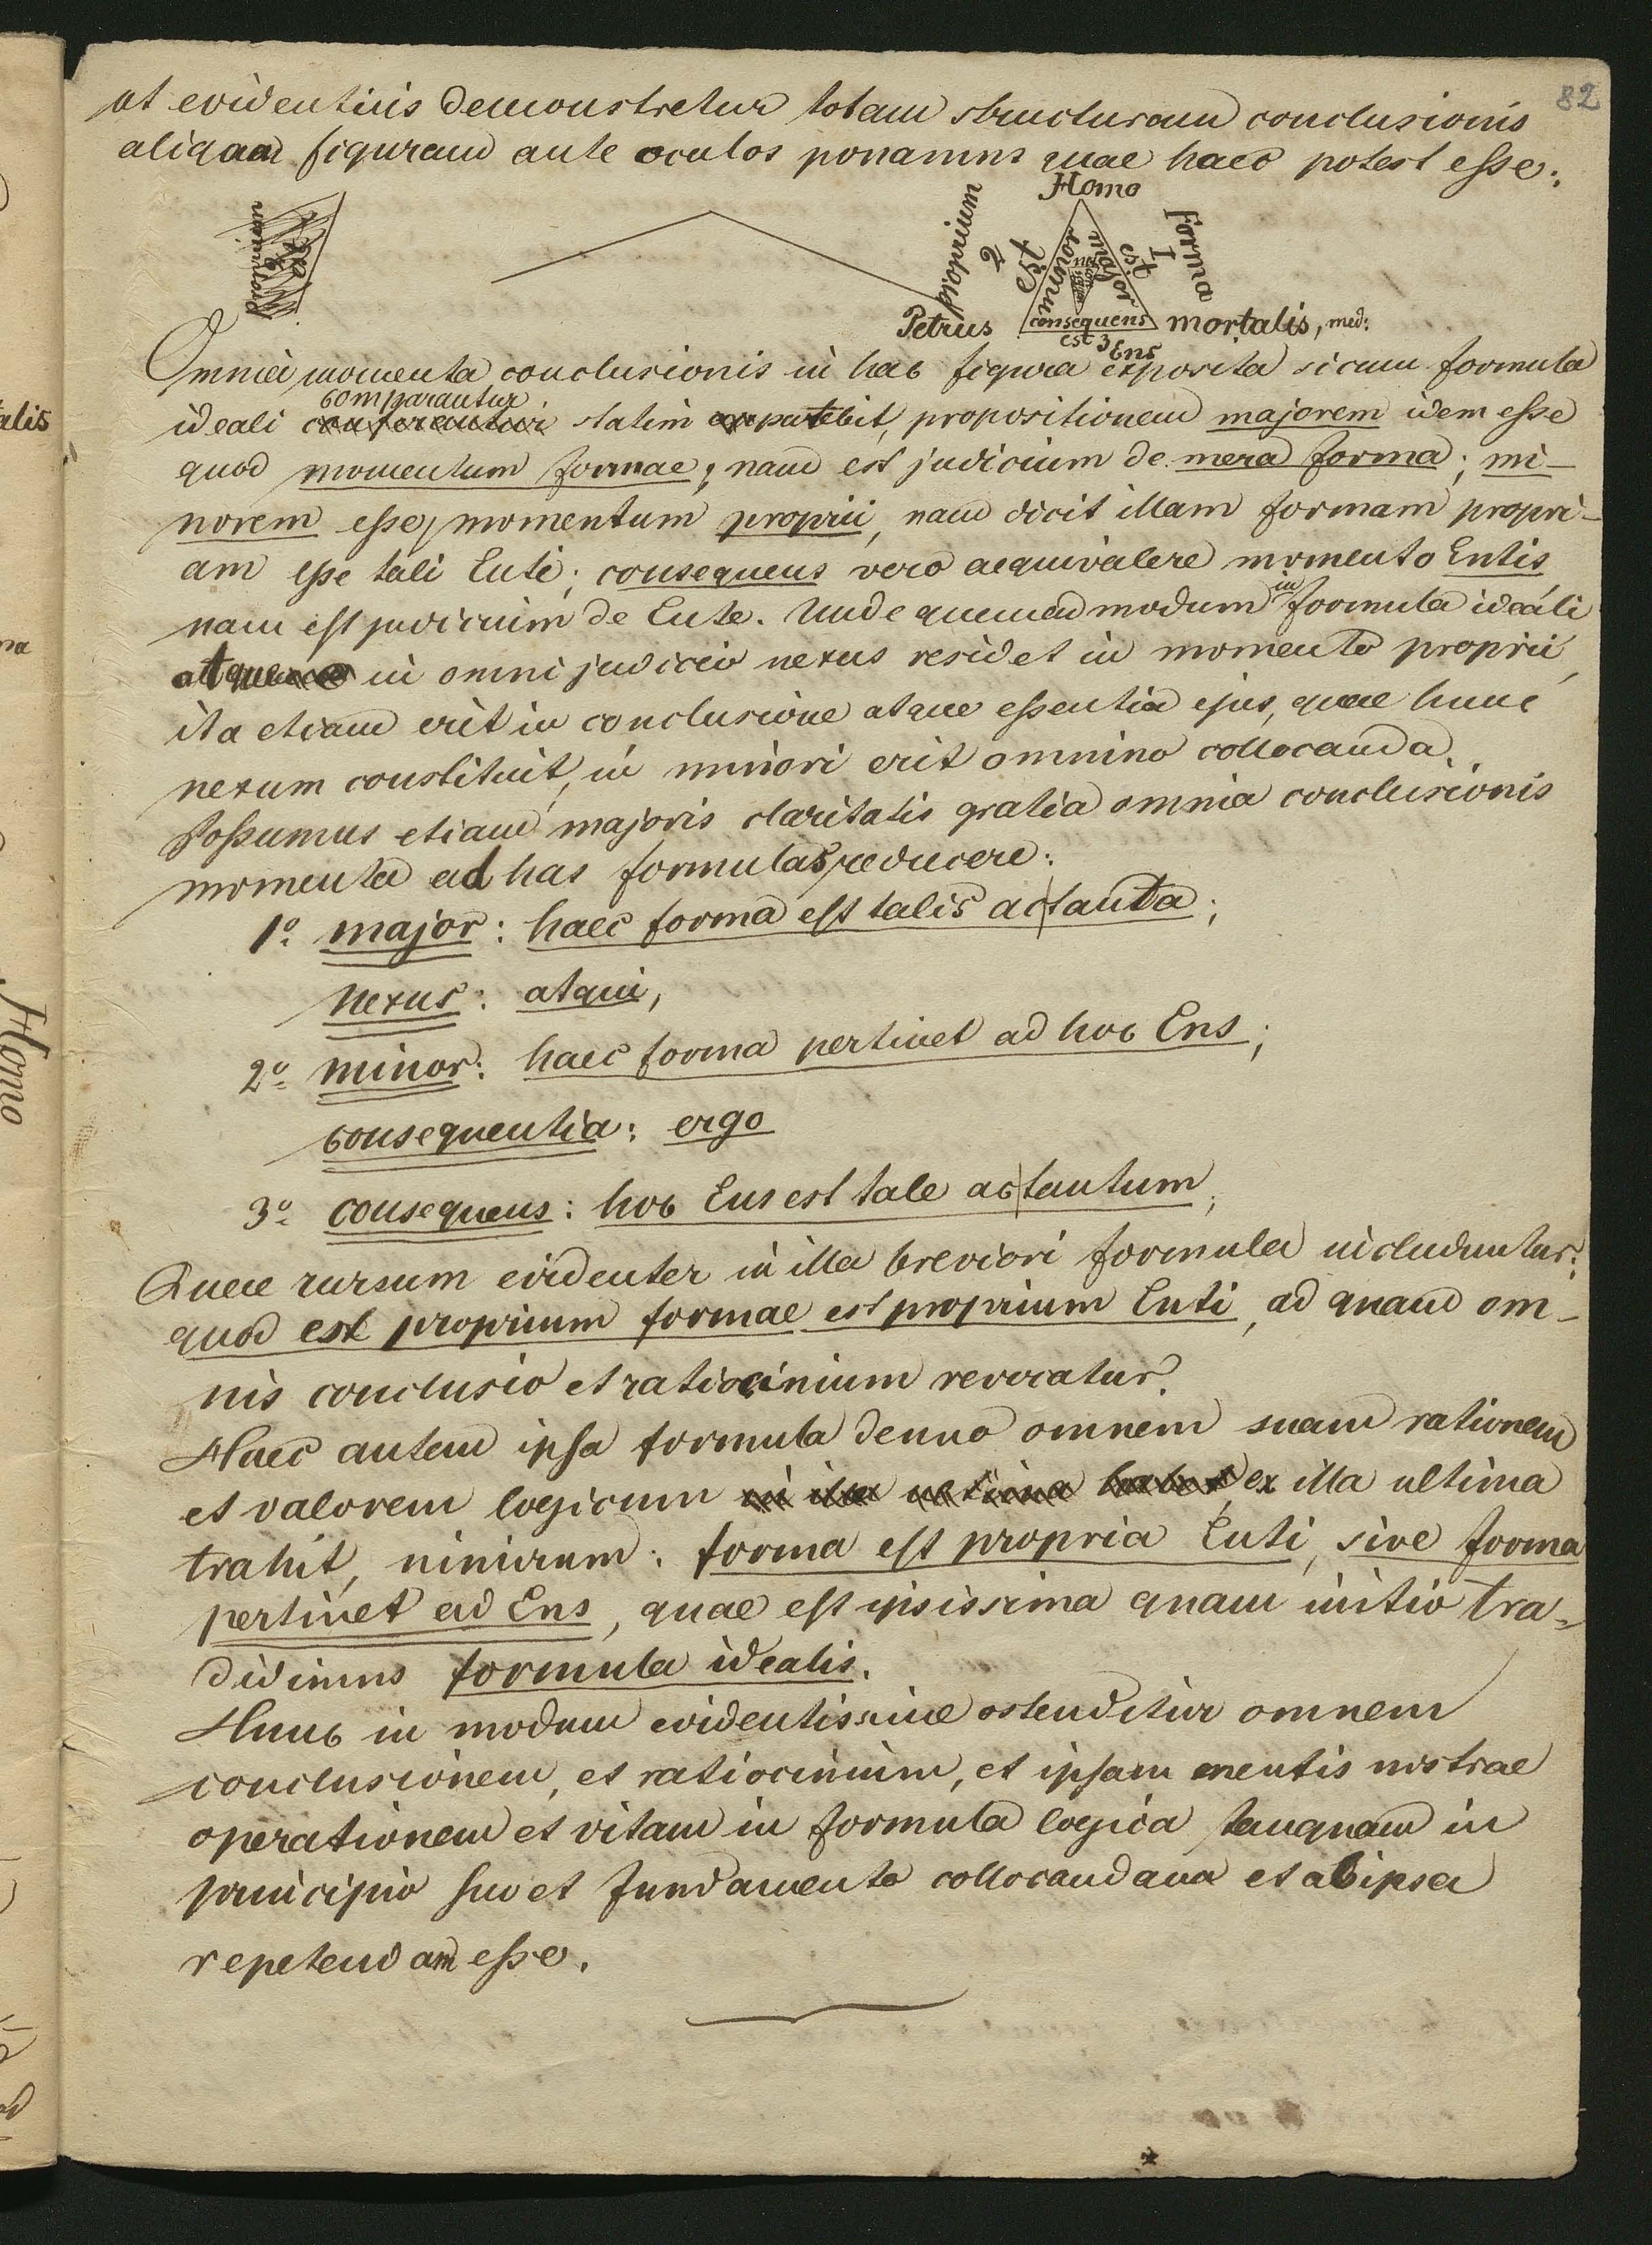 82
ut evidentius demonstretur totam structuram conclusionis
aliquam figuram ante oculos ponamus quae haec potest esse:
Homo
proprium
2
est
minor
major
est
1
Forma
Petrus
consequens
mortalis, med:
est 3 Ens
Omnia momenta conclusionis in hac figura exposita si cum formula
comparantur
ideali conferantur statim apparebit, propositionem majorem idem esse
quod momentum formae, nam est judicium de mera forma; mi-
norem esse momentum proprii, nam dicit illam formam propri-
am esse tali Enti; consequens vero aequivalere momento Entis
nam est judicium de Ente. Unde quemadmodum in formula ideali
atque in omni judicio nexus residet in momento proprii,
ita etiam erit in conclusione atque essentia ejus, quae hunc
nexum constituit, in minori erit omnino collocanda.
Possumus etiam majoris claritatis gratia omnia conclusionis
momenta ad has formulas reducere:
1o major: haec forma est talis ac tanta;
nexus: atqui,
2o minor: haec forma pertinet ad hoc Ens;
consequentia: ergo
3o consequens: hoc Ens est tale ac tantum;
Quae rursum evidenter in illa breviori formula includuntur:
quod est proprium formae est proprium Enti, ad quam om-
nis conclusio et ratiocinium revocatur.
Haec autem ipsa formula denuo omnem suam rationem
et valorem logicum in illa ultima habet, ex illa ultima
trahit, nimirum: forma est propria Enti, sive forma
pertinet ad Ens, quae est ipsissima quam initio tra-
didimus formula idealis.
Hunc in modum evidentissime ostenditur omnem
conclusionem, et ratiocinium, et ipsam mentis nostrae
operationem et vitam in formula logica tanquam in
principio suo et fundamento collocandam et ab ipsa
repetendam esse.
alis
na
Homo